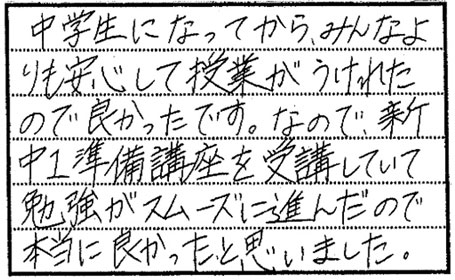 中学生になってから、みんなよ
りも安心して授業がうけれた
ので良かったです。なので、新
中1準備講座を受講していて
勉強がスムーズに進んだので
本当に良かったと思いました。